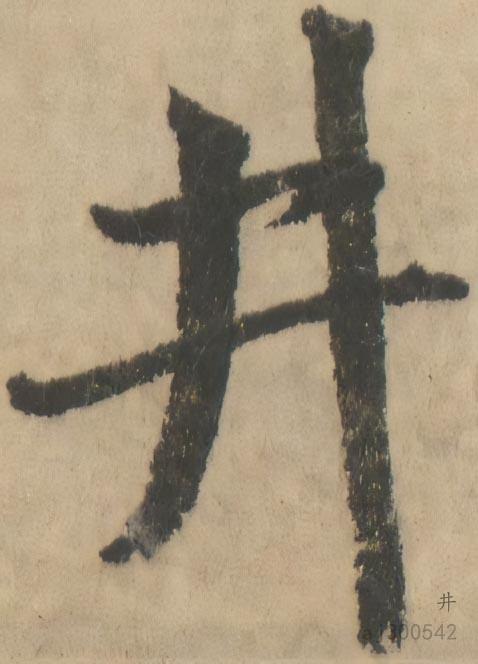 井
井
a1300542